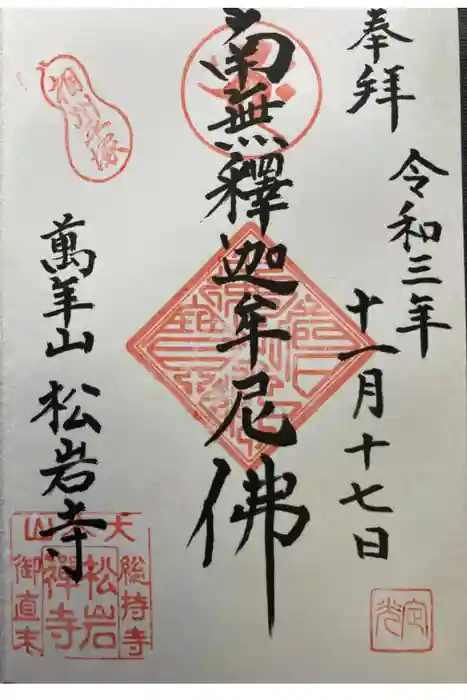 奉拝
令和三年
十一月十七日
南無釋迦牟尼佛
萬年山 松岩寺
大本山
總持寺
御直末
松岩
禅寺